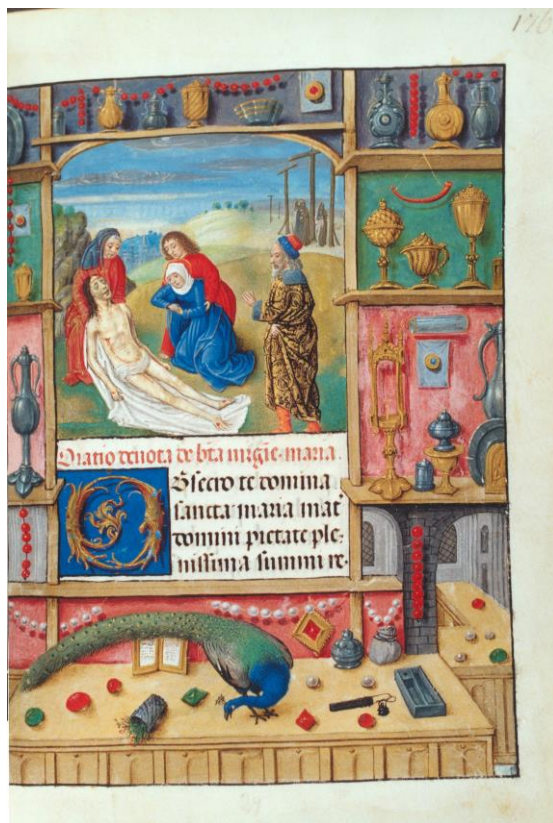 176
Oratio deuota de bta uirgie maria.
OBsecro te domina
sancta maria mat
domini pietate ple-
nissima summi re-